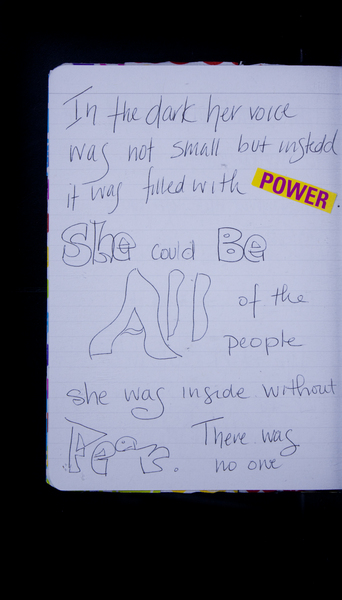 In the dark her voice
was not small but instedd
it was filled with POWER.
She could Be
All of the
people
she was inside without
Fear. There was
no one